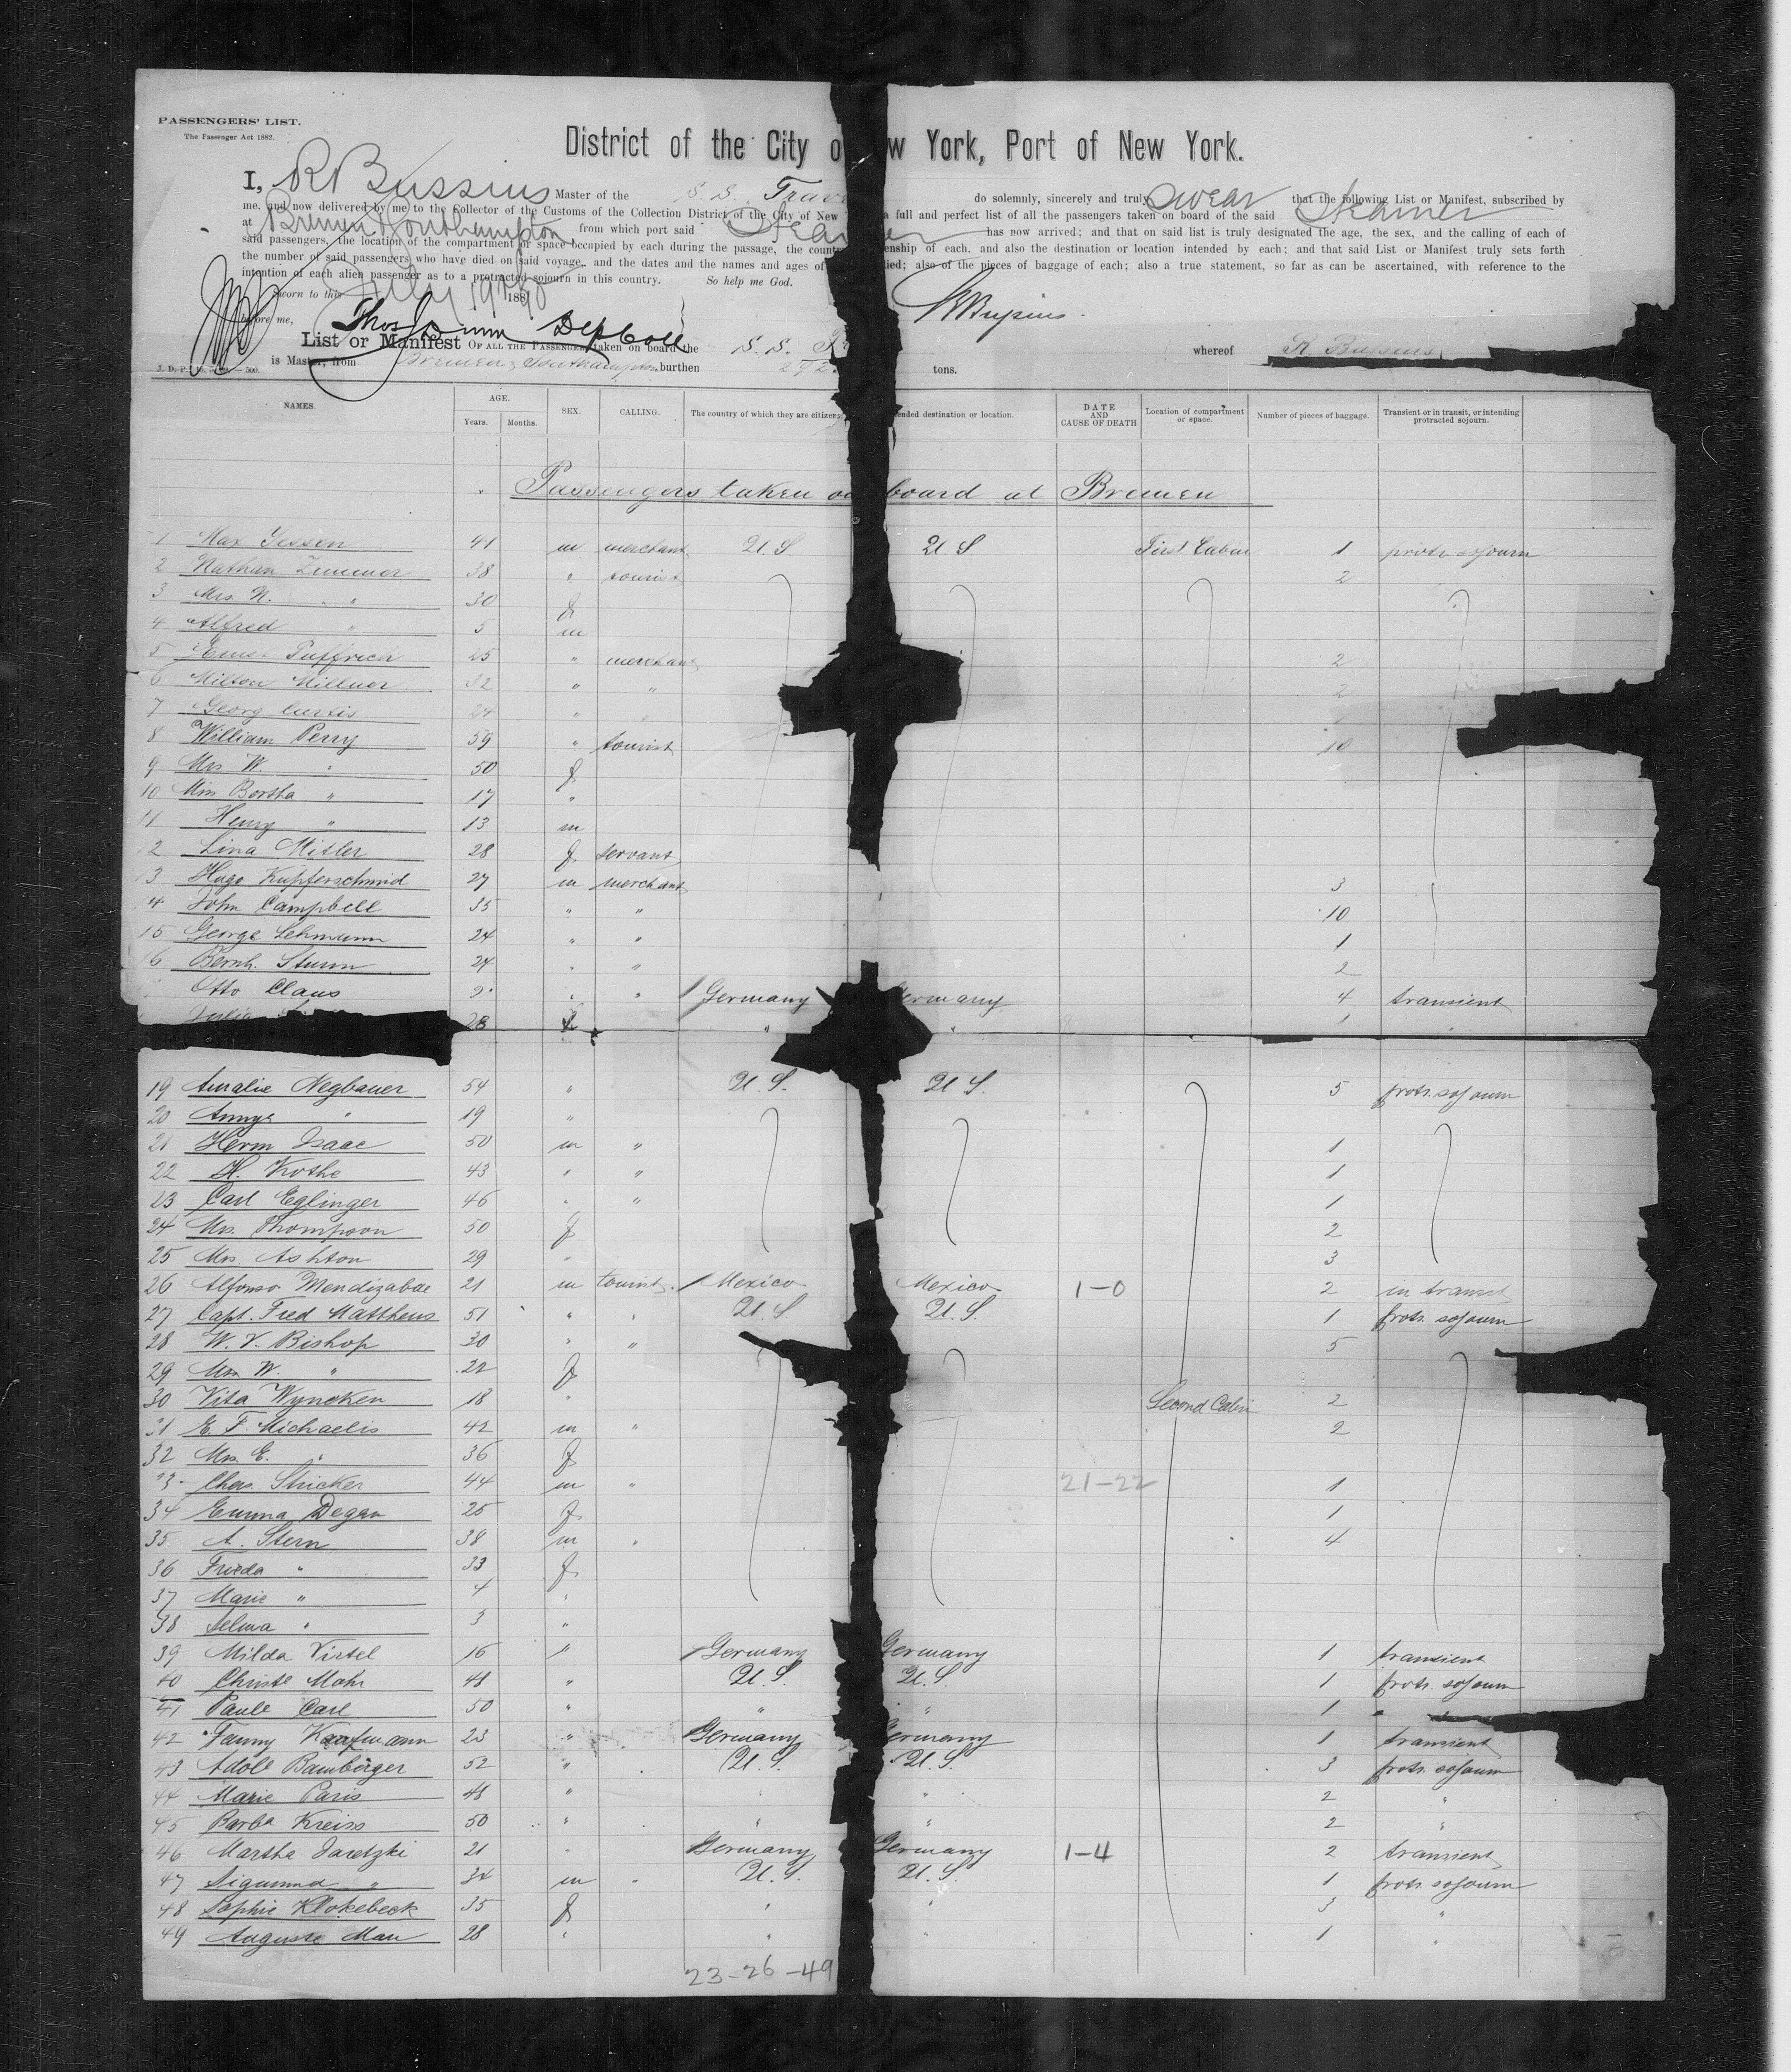 PASSENGERS' LIST.
The Passenger Act 1882.
District of the City o w York, Port of New York.
I, R Bussius Master of the S. S. Trave do solemnly, sincerely and truly swear that the following List or Manifest, subscribed by
me, and now delivered by me to the Collector of the Customs of the Collection District of the City of New a full and perfect list of all the passengers taken on board of the said Steamer
at Bremen & Southampton from which port said Steamer has now arrived; and that on said list is truly designated the age, the sex, and the calling of each of
said passengers, the location of the compartment or space occupied by each during the passage, the country enship of each, and also the destination or location intended by each; and that said List or Manifest truly sets forth
the number of said passengers who have died on said voyage, and the dates and the names and ages of lied; also of the pieces of baggage of each; also a true statement, so far as can be ascertained, with reference to the
intention of each alien passenger as to a protracted sojourn in this country. So help me God.
Sworn to this July 19th 188
before me, Thos Dunn Dep Coll R Bussius.
List or Manifest OF ALL THE PASSENGERS taken on board the S. S. whereof R Bussius
is Master, from Bremen & Southampton burthen tons.
NAMES. AGE. Years. Months. SEX. CALLING. The country of which they are citizens. ended destination or location. DATE AND CAUSE OF DEATH Location of compartment or space. Number of pieces of baggage. Transient or in transit, or intending protracted sojourn.
Passengers taken on board at Bremen
1 Max Jessen 41 m merchant U.S U.S First Cabin 1 protr. sojourn
2 Nathan Zimmer 38 " tourist 2
3 Mrs. N. " 30 f
4 Alfred " 5 m
5 Puffrich 25 " merchant 2
6 Milton Millner 32 " " 2
7 Georg Curtis 24 "
8 William Perry 59 " tourist 10
9 Mrs W. " 50 f
10 Miss Bertha " 17 "
11 Henry " 13 m
2 Lina Mitler 28 f servant
3 Hugo Kupferschmid 27 m merchant 3
4 John Campbell 35 " " 10
15 George Lehmann 24 " " 1
6 Bernh. Sturm 24 " " 2
Otto Claus " " Germany ermany 4 transient
28 " " 1
19 Amalie Negbauer 54 " U.S. U.S. 5 protr. sojourn
20 Annye " 19 "
21 Herm Isaac 50 m " 1
22 H. Kothe 43 " " 1
23 Carl Eglinger 46 " " 1
24 Mrs. Thompson 50 f 2
25 Mrs. Ashton 29 " 3
26 Alfonso Mendizabal 21 m tourist Mexico Mexico 1-0 2 in transit
27 Capt. Fred Matthews 51 " " U.S. U.S. 1 protr. sojourn
28 W. V. Bishop 30 " " 5
29 Mrs W. " 22 f
30 Vita Wyncken 18 " Second Cabin 2
31 E. F. Michaelis 42 m " 2
32 Mrs. E. " 36 f
3 Chas. Stricker 44 m " 21-22 1
34 Emma Degan 25 f 1
35 A. Stern 38 m " 4
36 Frieda " 33 f
37 Marie " 4 "
38 Selma " 3 "
39 Milda Virtel 16 " Germany Germany 1 transient
40 Christe Mohr 48 " U.S. U.S. 1 protr. sojourn
41 Paule Carl 50 " " " 1 "
42 Fanny Kaufmann 23 " Germany ermany 1 transient
43 Adole Bamberger 52 " U.S. U.S. 3 protr. sojourn
44 Marie Paris 48 " " " 2 "
45 Barba Kreiss 50 " " " 2 "
46 Martha Jaretzki 21 " Germany Germany 1-4 2 transient
47 Sigmund " 34 m " U.S. U.S. 1 protr. sojourn
48 Sophie Klokebeck 35 f " " 3 "
49 Auguste Mau 28 " " " 1 "
23-26-49